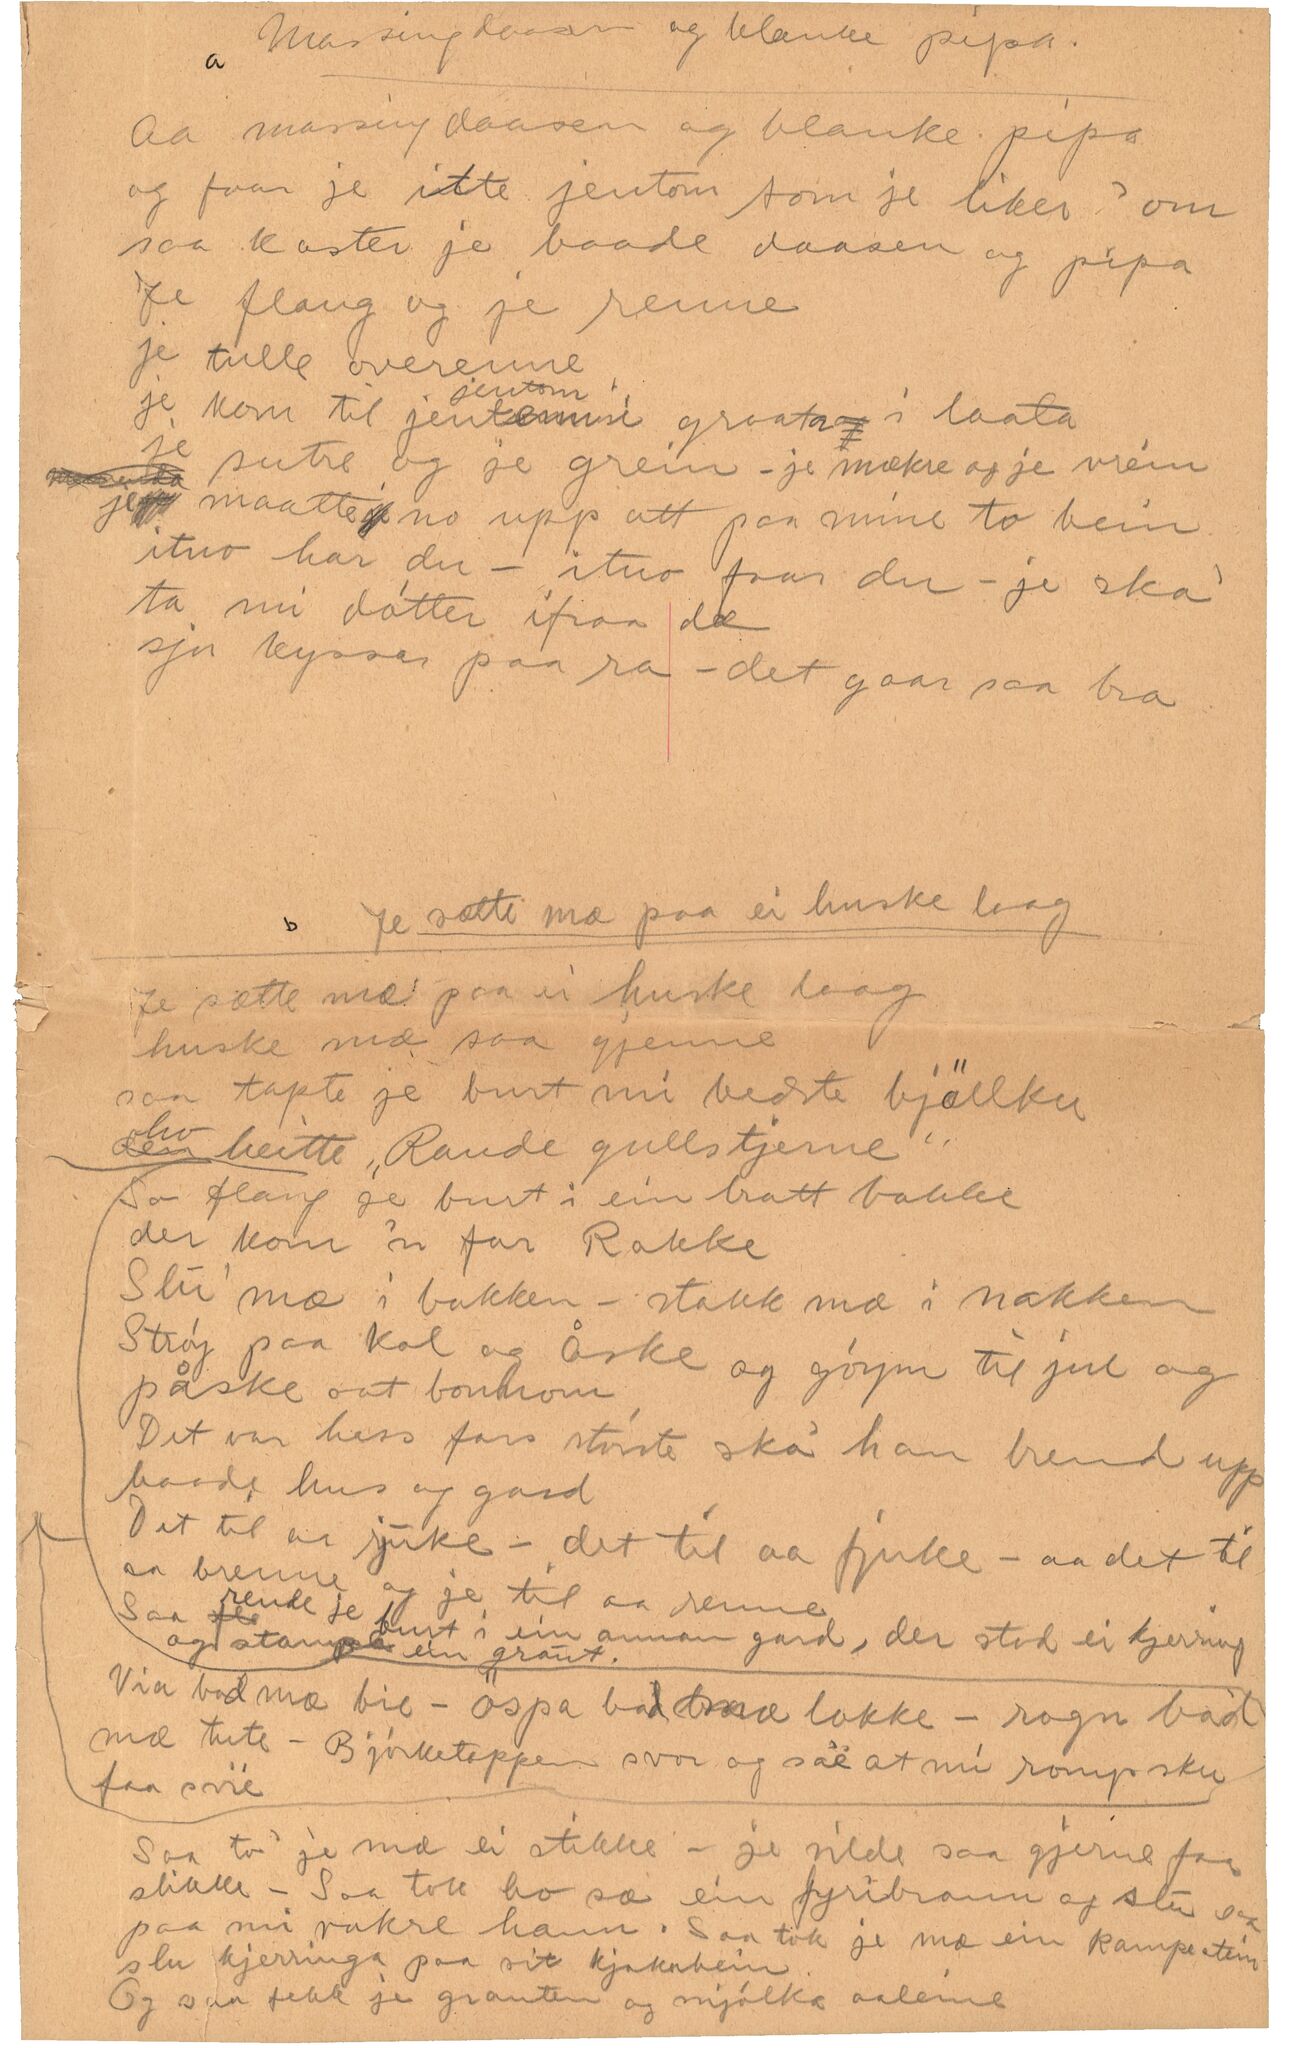 a Massingdaasen og blanke pipa.
Aa massingdaasen og blanke pipa
og faar je itte jentom som je liker 'om
saa kaster je baade daasen og pipa
Je flaug og je renne
je tulle overenne
jentom
je kom til graata i laata
je sutre og je grein - je mækre og je vrein
je maatte no upp att paa mine to bein
itno har du - itno faar du - je ska'
ta mi dótter ifraa dæ
sjn kyssar paa ra - det gaar saa bra
b Je sætte mæ paa ei huske laag
Je sætte mæ paa ei huske laag
huske mæ saa gjenne
saa tapte je burt mi bedste bjöllku
ho
den heitte „Raude gullstjerne"
Saa flaug je burt i ein bratt bakke
der kom 'n far Rakke
Slu' mæ i bakken - stakk mæ i nakken
Strøj paa kol og Åske og góym til jul og
påske aat bonhom
Det var hess fars störste ska' han brend upp
baade hus og gard
Det til aa rjuke - det til aa fjuke - aa det til
aa brenne og je til aa renne
Saa rende je burt i ein annan gard, der stod ei kjerring
og stampa ein graut.
Via bad mæ bie - Öspa bad mæ lokke - rogn bad
mæ tute - Bjórketoppen svor og sae at mi romp sku
faa svie
Saa to' je mæ ei stikke - je vilde saa gjerne faa
slikke - Saa tok ho sæ ein fyribrann og slu saa
paa mi vakre hann. Saa tok je mæ ein kampestein
slu kjerringa paa sit kjakabein.
Og saa fekk je grauten og mjólka aaleine